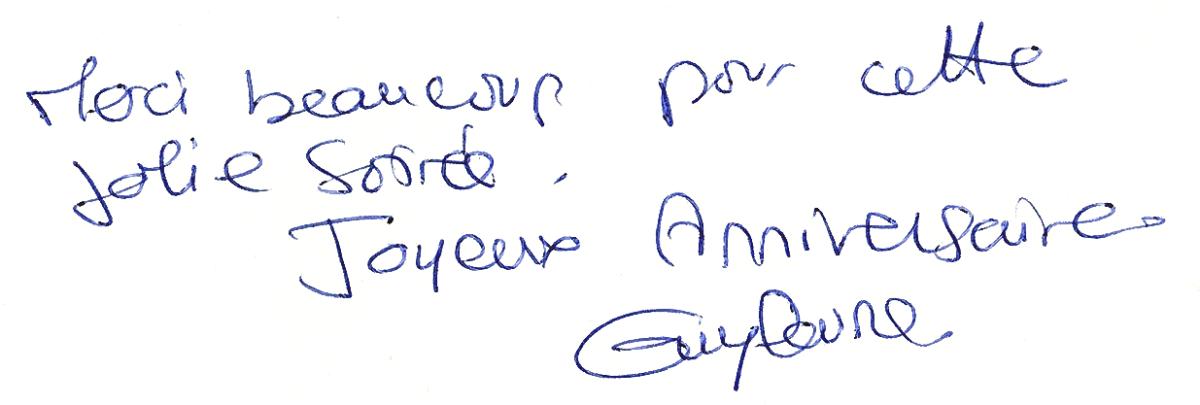 Merci beaucoup pour cette
jolie Soirée.
Joyeux Anniversaire
Guylaine